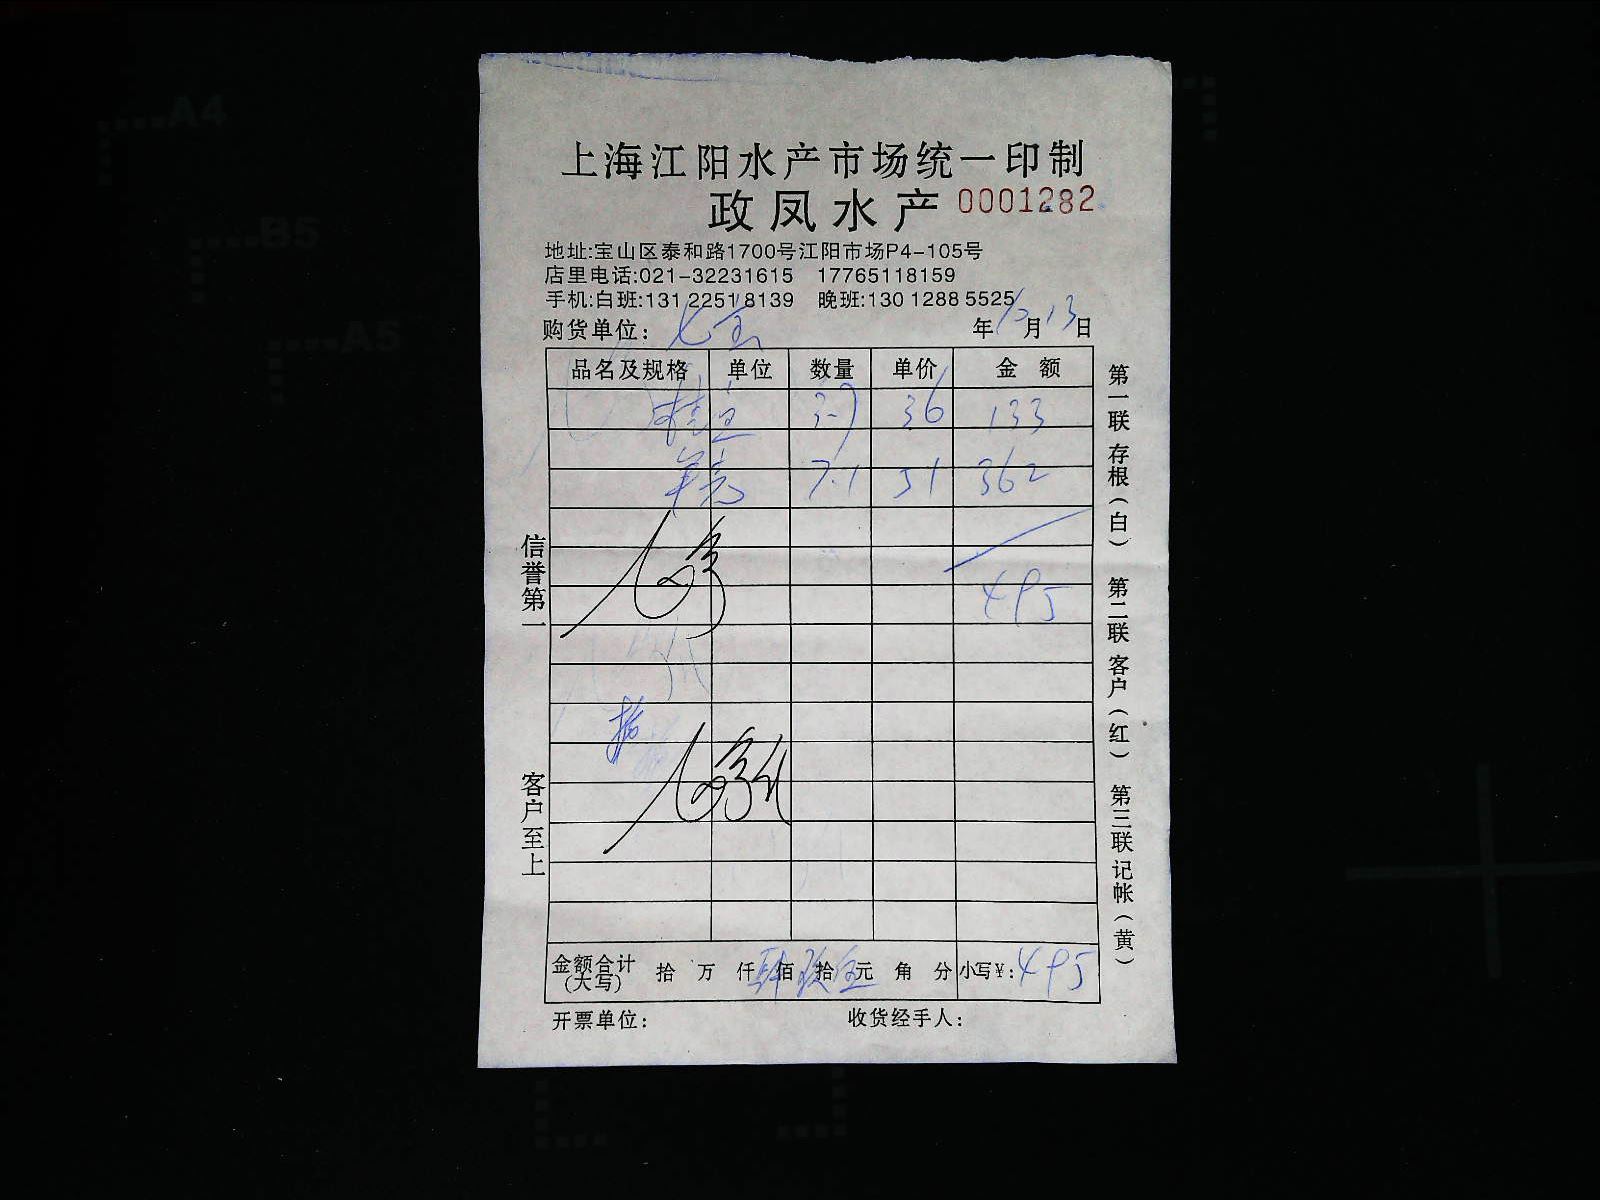 上海江阳水产市场统一印制
政凤水产 0001282
地址:宝山区泰和路1700号江阳市场P4-105号
店里电话:021-32231615 17765118159
手机:白班:131 2251 8139 晚班:130 1288 5525
购货单位: 七宝 年12月13日
品名及规格 单位 数量 单价 金额
桂鱼 3.7 36 133
7.1 51 362
495
金额合计(大写) 拾 万 仟肆佰玖拾伍元 角 分 小写¥:495
开票单位: 收货经手人:
信誉第一
客户至上
第一联 存根(白)
第二联 客户(红)
第三联 记帐(黄)
A4
B5
A5